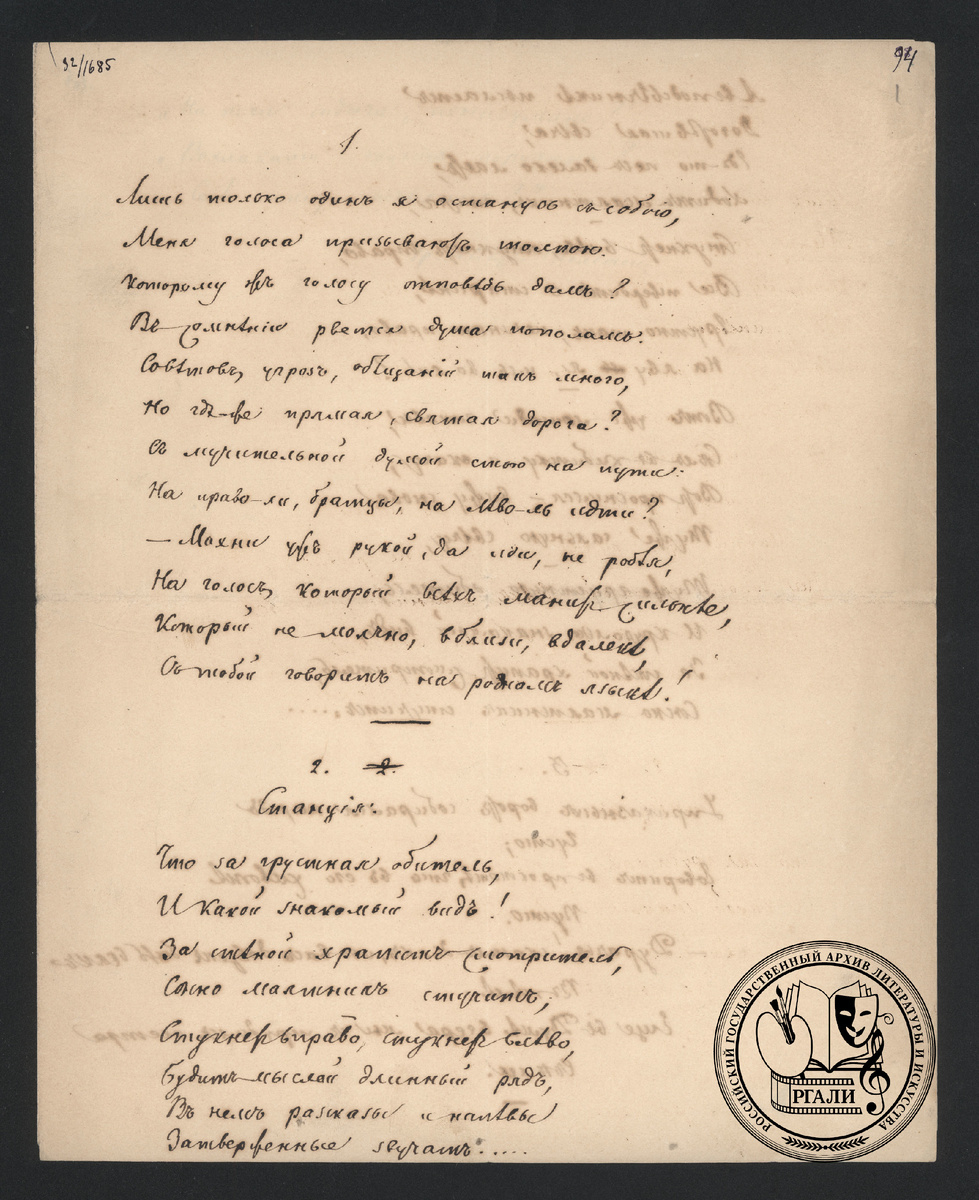 32/1685
94
1.
Лишь только одинъ я останусь съ собою,
Меня голоса призываютъ толпою.
Которому жъ голосу отповѣдь дамъ?
Въ сомнѣніи рвется душа пополамъ.
Совѣтовъ, угрозъ, обѣщаній такъ много,
Но гдѣ-же прямая, святая дорога?
Съ мучительной думой стою на пути:
На право-ли, братцы, на лѣво-ль идти?
— Махни ужъ рукой, да иди, не робѣя,
На голосъ, который всѣхъ манитъ сильнѣе,
Который не молчно, вблизи, вдалекѣ,
Съ тобой говоритъ на родномъ языкѣ!
2. 2.
Станція.
Что за грустная обитель,
И какой знакомый видъ!
За стѣной храпитъ смотритель,
Сонно маятникъ стучитъ;
Стукнетъ вправо, стукнетъ влѣво,
Будитъ мыслей длинный рядъ,
Въ немъ разсказы и напѣвы
Затверженные звучатъ.....
РОССИЙСКИЙ ГОСУДАРСТВЕННЫЙ АРХИВ ЛИТЕРАТУРЫ И ИСКУССТВА
РГАЛИ